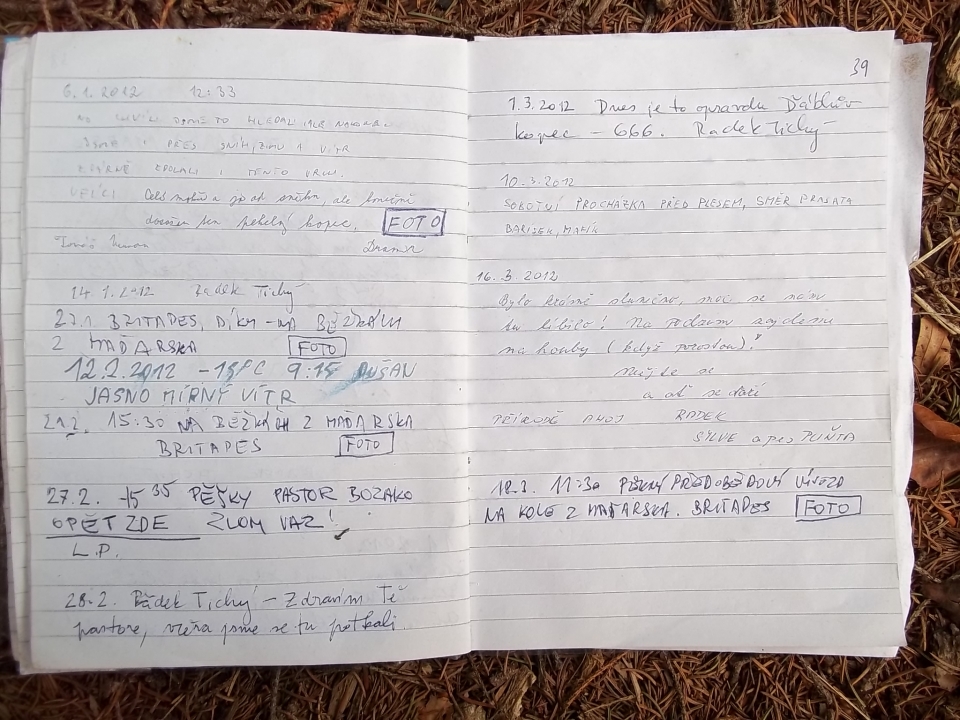 6.1.2012 12:33
JSME I PŘES SNÍH, ZIMU A VÍTR
ZDÁRNĚ ZDOLALI I TENTO VRCH.
ale konečně
pekelný kopec. FOTO
Tomáš
14.1.2012 Radek Tichý
27.1 BRITAPES, DÍKY - NA BĚŽKÁCH
Z MAĎARSKA FOTO
12.2.2012 -15°C 9:15 DUŠAN
JASNO MÍRNÝ VÍTR
21.2. 15:30 NA BĚŽKÁCH Z MAĎARSKA
BRITAPES FOTO
27.2. 15 35 PĚŠKY PASTOR BOZAKO
OPĚT ZDE ZLOM VAZ!
L.P.
28.2. Radek Tichý - Zdravím Tě
pastore, včera jsme se tu potkali
39
1.3.2012 Dnes je to opravdu Ďáblův
kopec - 666. Radek Tichý
10.3.2012
SOBOTNÍ PROCHÁZKA PŘED PLESEM, SMĚR
BAŘÍŠEK, MAFÍK
16.3.2012
Bylo krásně slunečno, moc se nám
tu líbilo! Na podzim
na houby (když porostou)!
Mějte se
a ať se daří
PŘÍRODĚ AHOJ RADEK
SILVE a pes PUŇŤA
18.3. 11:30 PĚKNÝ PŘEDOBĚDOVÝ
NA KOLE Z MAĎARSKA. BRITAPES FOTO